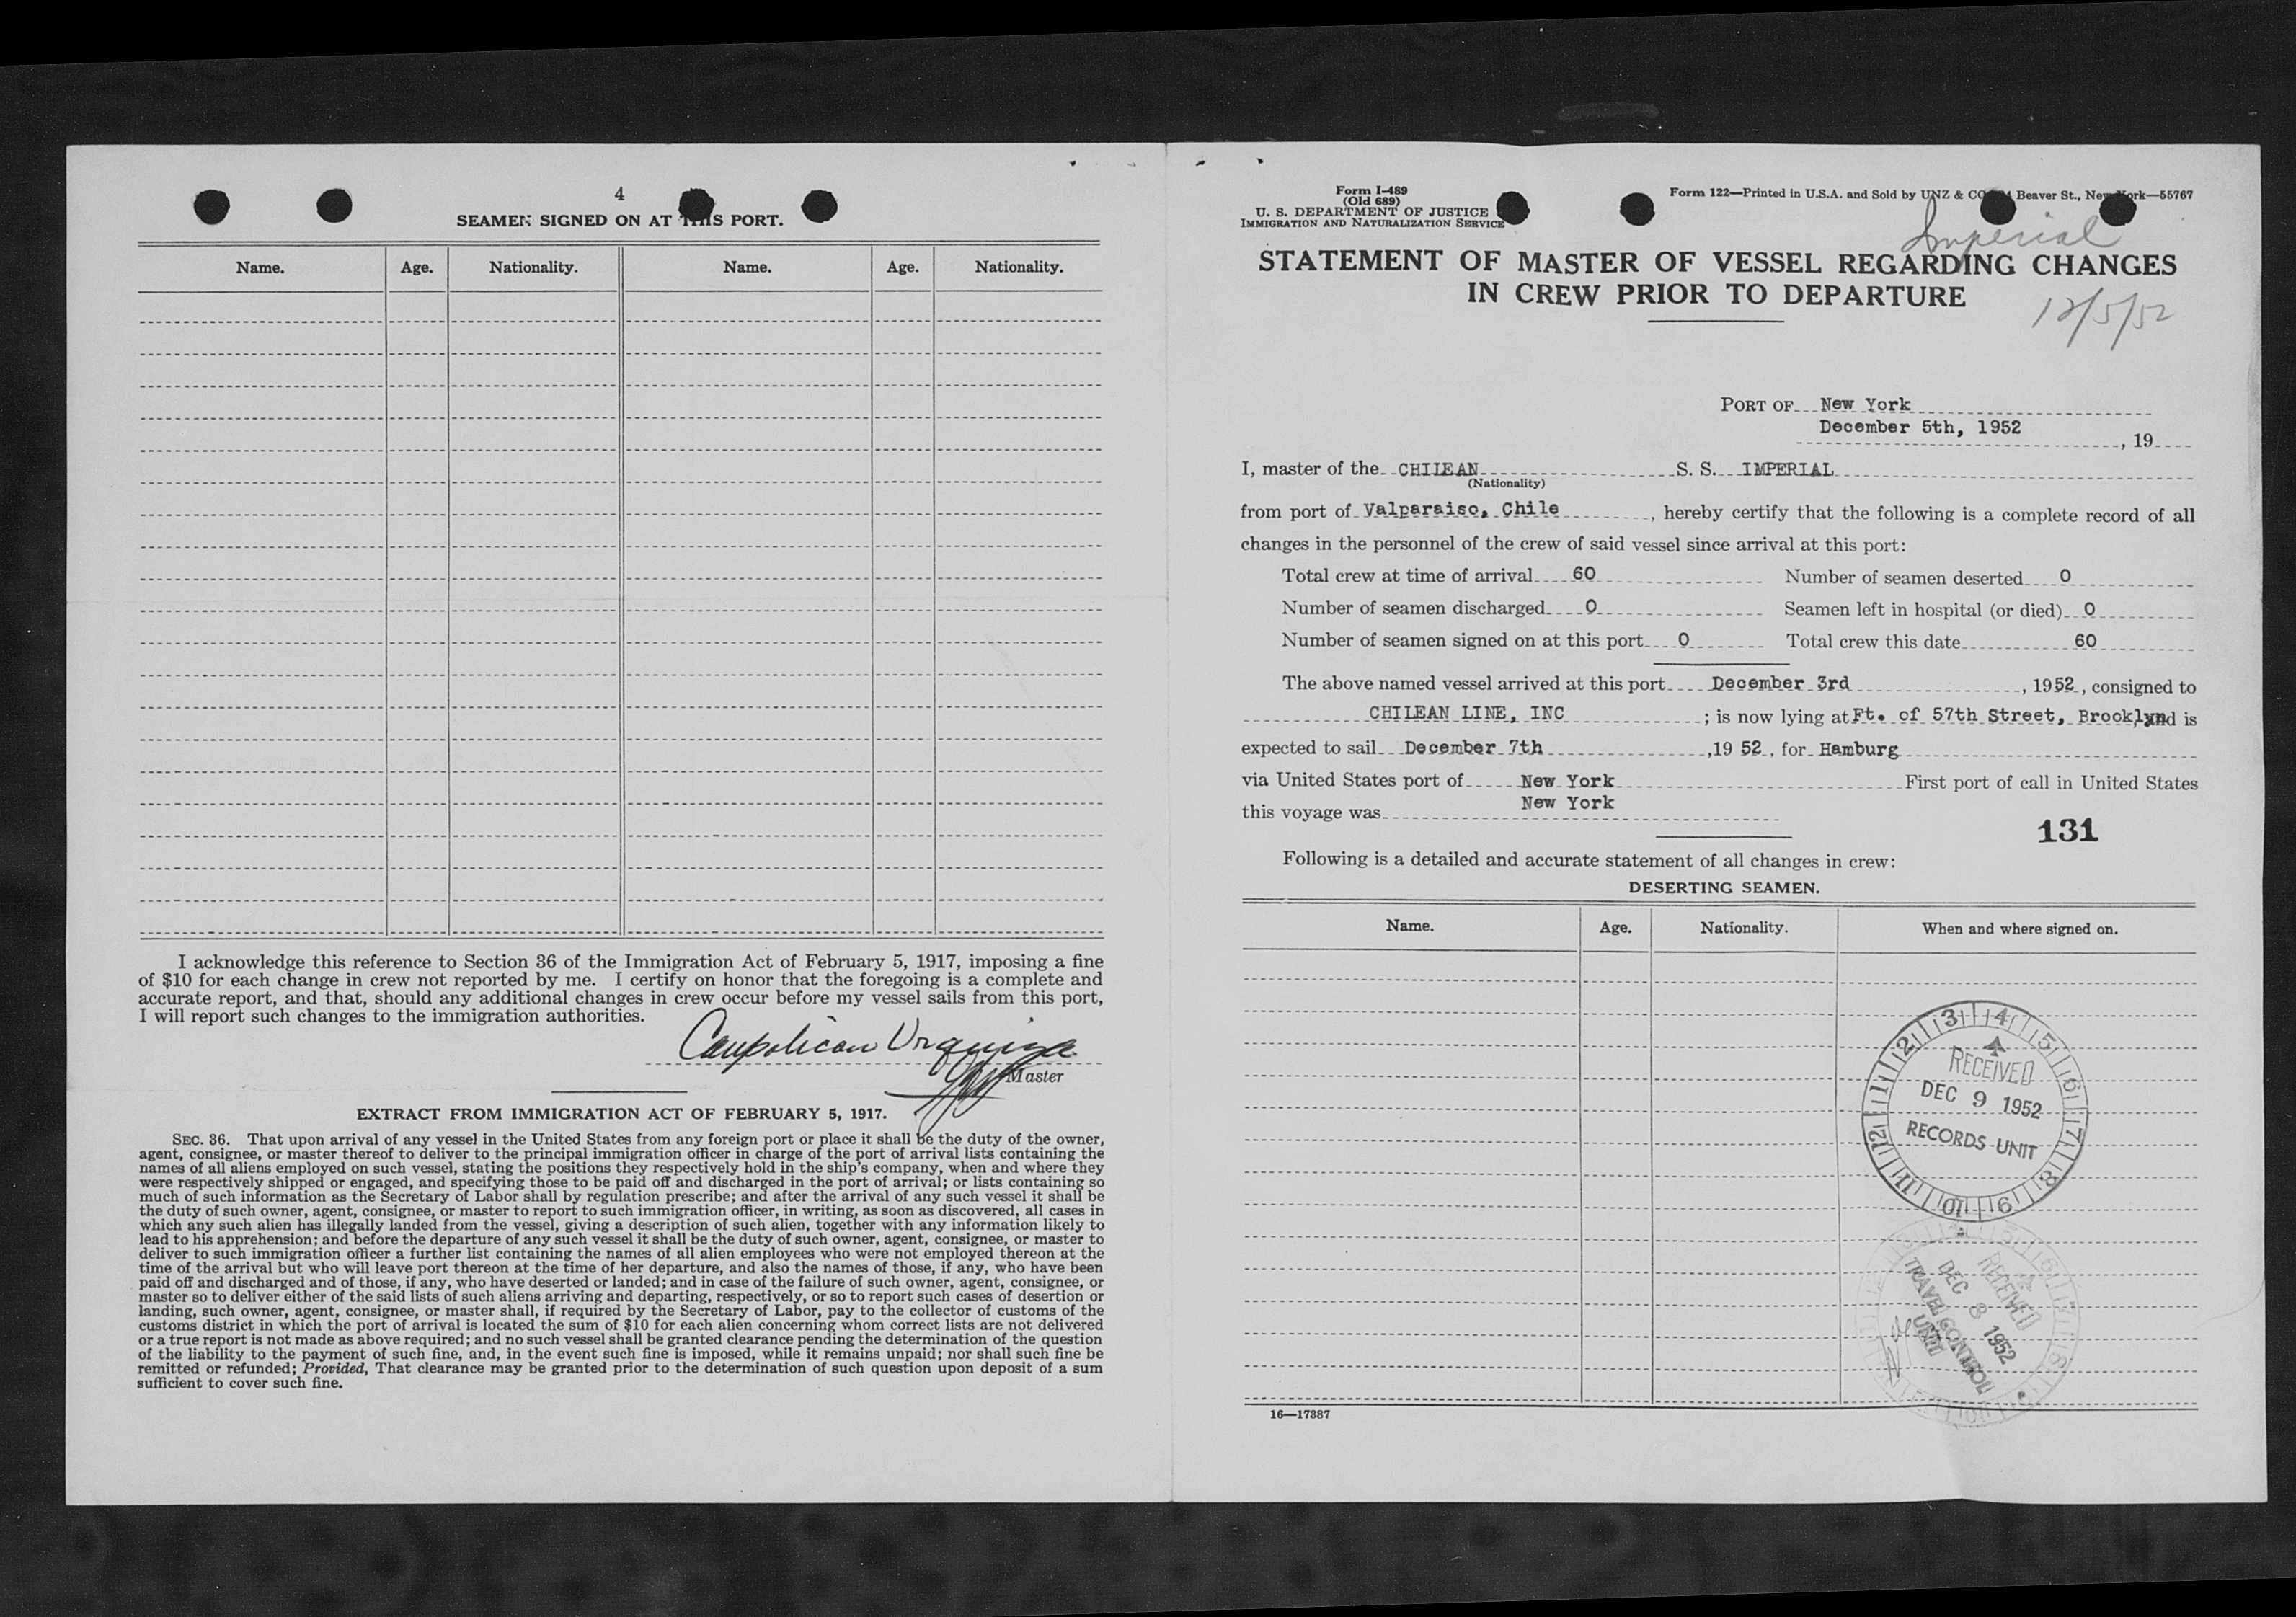 4
SEAMEN SIGNED ON AT THIS PORT.
Name. Age. Nationality. Name. Age. Nationality.
I acknowledge this reference to Section 36 of the Immigration Act of February 5, 1917, imposing a fine
of $10 for each change in crew not reported by me. I certify on honor that the foregoing is a complete and
accurate report, and that, should any additional changes in crew occur before my vessel sails from this port,
I will report such changes to the immigration authorities.
Caupolican Urquiza
Master
EXTRACT FROM IMMIGRATION ACT OF FEBRUARY 5, 1917.
SEC. 36. That upon arrival of any vessel in the United States from any foreign port or place it shall be the duty of the owner,
agent, consignee, or master thereof to deliver to the principal immigration officer in charge of the port of arrival lists containing the
names of all aliens employed on such vessel, stating the positions they respectively hold in the ship's company, when and where they
were respectively shipped or engaged, and specifying those to be paid off and discharged in the port of arrival; or lists containing so
much of such information as the Secretary of Labor shall by regulation prescribe; and after the arrival of any such vessel it shall be
the duty of such owner, agent, consignee, or master to report to such immigration officer, in writing, as soon as discovered, all cases in
which any such alien has illegally landed from the vessel, giving a description of such alien, together with any information likely to
lead to his apprehension; and before the departure of any such vessel it shall be the duty of such owner, agent, consignee, or master to
deliver to such immigration officer a further list containing the names of all alien employees who were not employed thereon at the
time of the arrival but who will leave port thereon at the time of her departure, and also the names of those, if any, who have been
paid off and discharged and of those, if any, who have deserted or landed; and in case of the failure of such owner, agent, consignee, or
master so to deliver either of the said lists of such aliens arriving and departing, respectively, or so to report such cases of desertion or
landing, such owner, agent, consignee, or master shall, if required by the Secretary of Labor, pay to the collector of customs of the
customs district in which the port of arrival is located the sum of $10 for each alien concerning whom correct lists are not delivered
or a true report is not made as above required; and no such vessel shall be granted clearance pending the determination of the question
of the liability to the payment of such fine, and, in the event such fine is imposed, while it remains unpaid; nor shall such fine be
remitted or refunded; Provided, That clearance may be granted prior to the determination of such question upon deposit of a sum
sufficient to cover such fine.
Form I-489
(Old 689)
U. S. DEPARTMENT OF JUSTICE
IMMIGRATION AND NATURALIZATION SERVICE
Form 122—Printed in U.S.A. and Sold by UNZ & CO Beaver St., New York—55767
Imperial
STATEMENT OF MASTER OF VESSEL REGARDING CHANGES
IN CREW PRIOR TO DEPARTURE
12/5/52
PORT OF New York
December 5th, 1952
, 19
I, master of the CHILEAN S. S. IMPERIAL
(Nationality)
from port of Valparaiso, Chile , hereby certify that the following is a complete record of all
changes in the personnel of the crew of said vessel since arrival at this port:
Total crew at time of arrival 60 Number of seamen deserted 0
Number of seamen discharged 0 Seamen left in hospital (or died) 0
Number of seamen signed on at this port 0 Total crew this date 60
The above named vessel arrived at this port December 3rd , 1952 , consigned to
CHILEAN LINE, INC ; is now lying at Ft. of 57th Street, Brooklyn and is
expected to sail December 7th ,19 52 , for Hamburg
via United States port of New York First port of call in United States
this voyage was New York
131
Following is a detailed and accurate statement of all changes in crew:
DESERTING SEAMEN.
Name. Age. Nationality. When and where signed on.
1 2 3 4 5 6 7 8 9 10 11 12
RECEIVED
DEC 9 1952
RECORDS UNIT
RECEIVED
DEC 8 1952
TRAVEL CONTROL
UNIT
16—17387